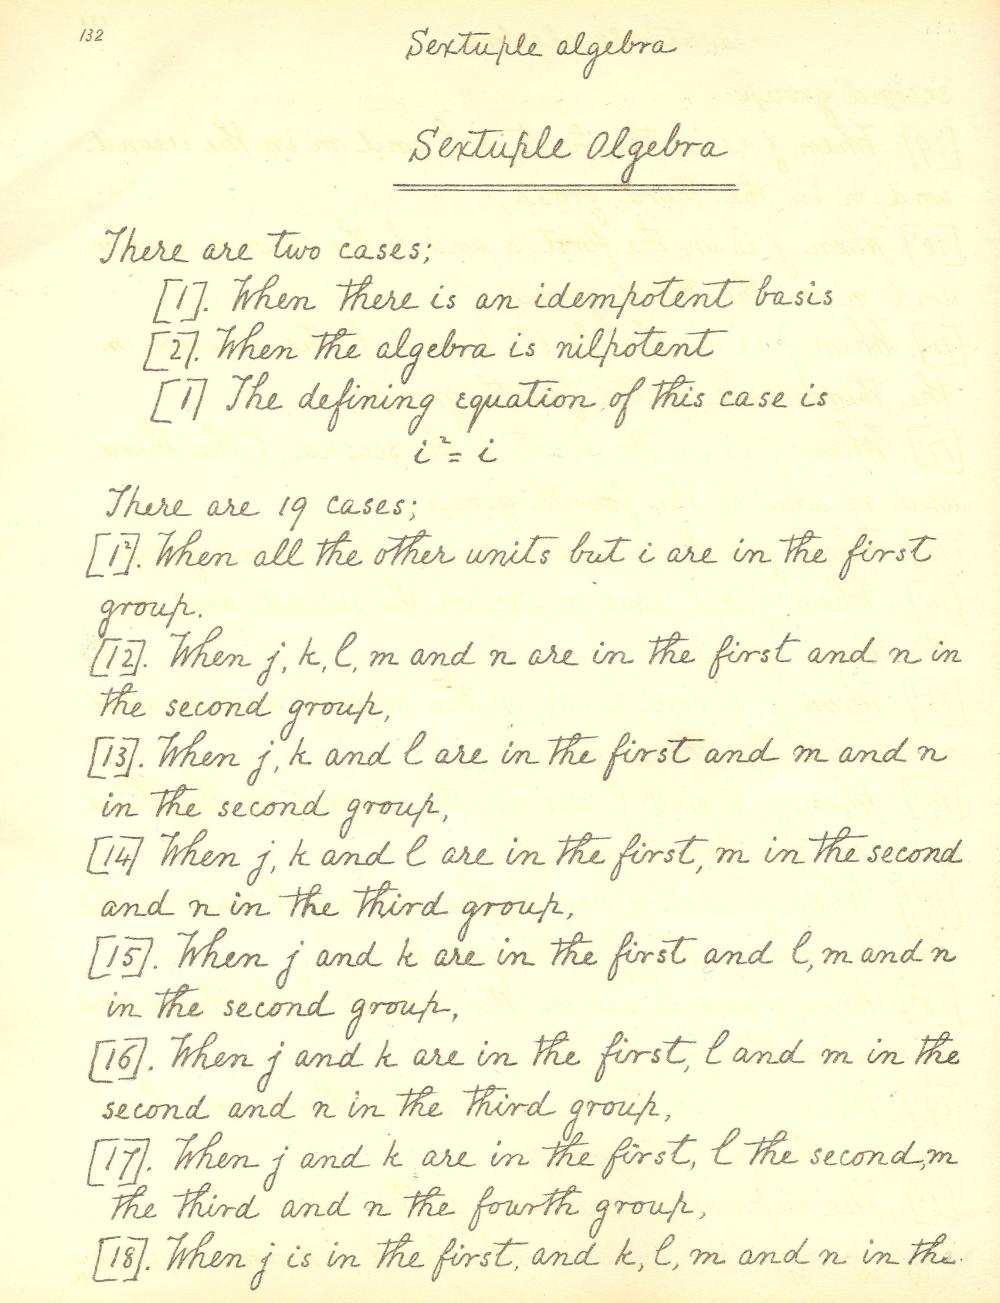 132
Sextuple algebra
Sextuple Algebra
There are two cases;
[1]. When there is an idempotent basis
[2]. When the algebra is nilpotent
[1] The defining equation of this case is
i² = i
There are 19 cases;
[1²]. When all the other units but i are in the first
group.
[12]. When j, k, l, m and n are in the first and n in
the second group,
[13]. When j, k and l are in the first and m and n
in the second group,
[14] When j, k and l are in the first, m in the second
and n in the third group,
[15]. When j and k are in the first and l, m and n
in the second group,
[16]. When j and k are in the first, l and m in the
second and n in the third group,
[17]. When j and k are in the first, l the second, m
the third and n the fourth group,
[18]. When j is in the first, and k, l, m and n in the